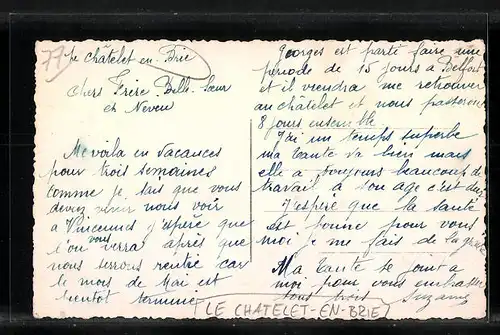 77
Le châtelet-en-Brie
Chers Frère Belle-Sœur
et Neveu
Me voila en vacances
pour trois semaines
comme je sais que vous
devez venir nous voir
à Vincennes j'espère que
l'on vous verra après que
nous serrons rentré car
le mois de Mai est
bientôt terminé
Georges est parti faire une
période de 15 jours à Belfort
et il viendra me retrouver
au châtelet et nous passerons
8 jours ensemble
J'ai un temps superbe
ma tante va bien mais
elle a toujours beaucoup de
travail à son age c'est dur
J'espère que la santé
est bonne pour vous
moi je me fais de la graisse
Ma tante se joint à
moi pour vous embrasser
tous trois Suzanne
(LE CHATELET-EN-BRIE)